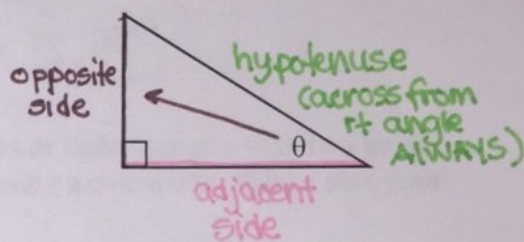 opposite
side
hypotenuse
(across from
rt angle
ALWAYS)
θ
adjacent
side